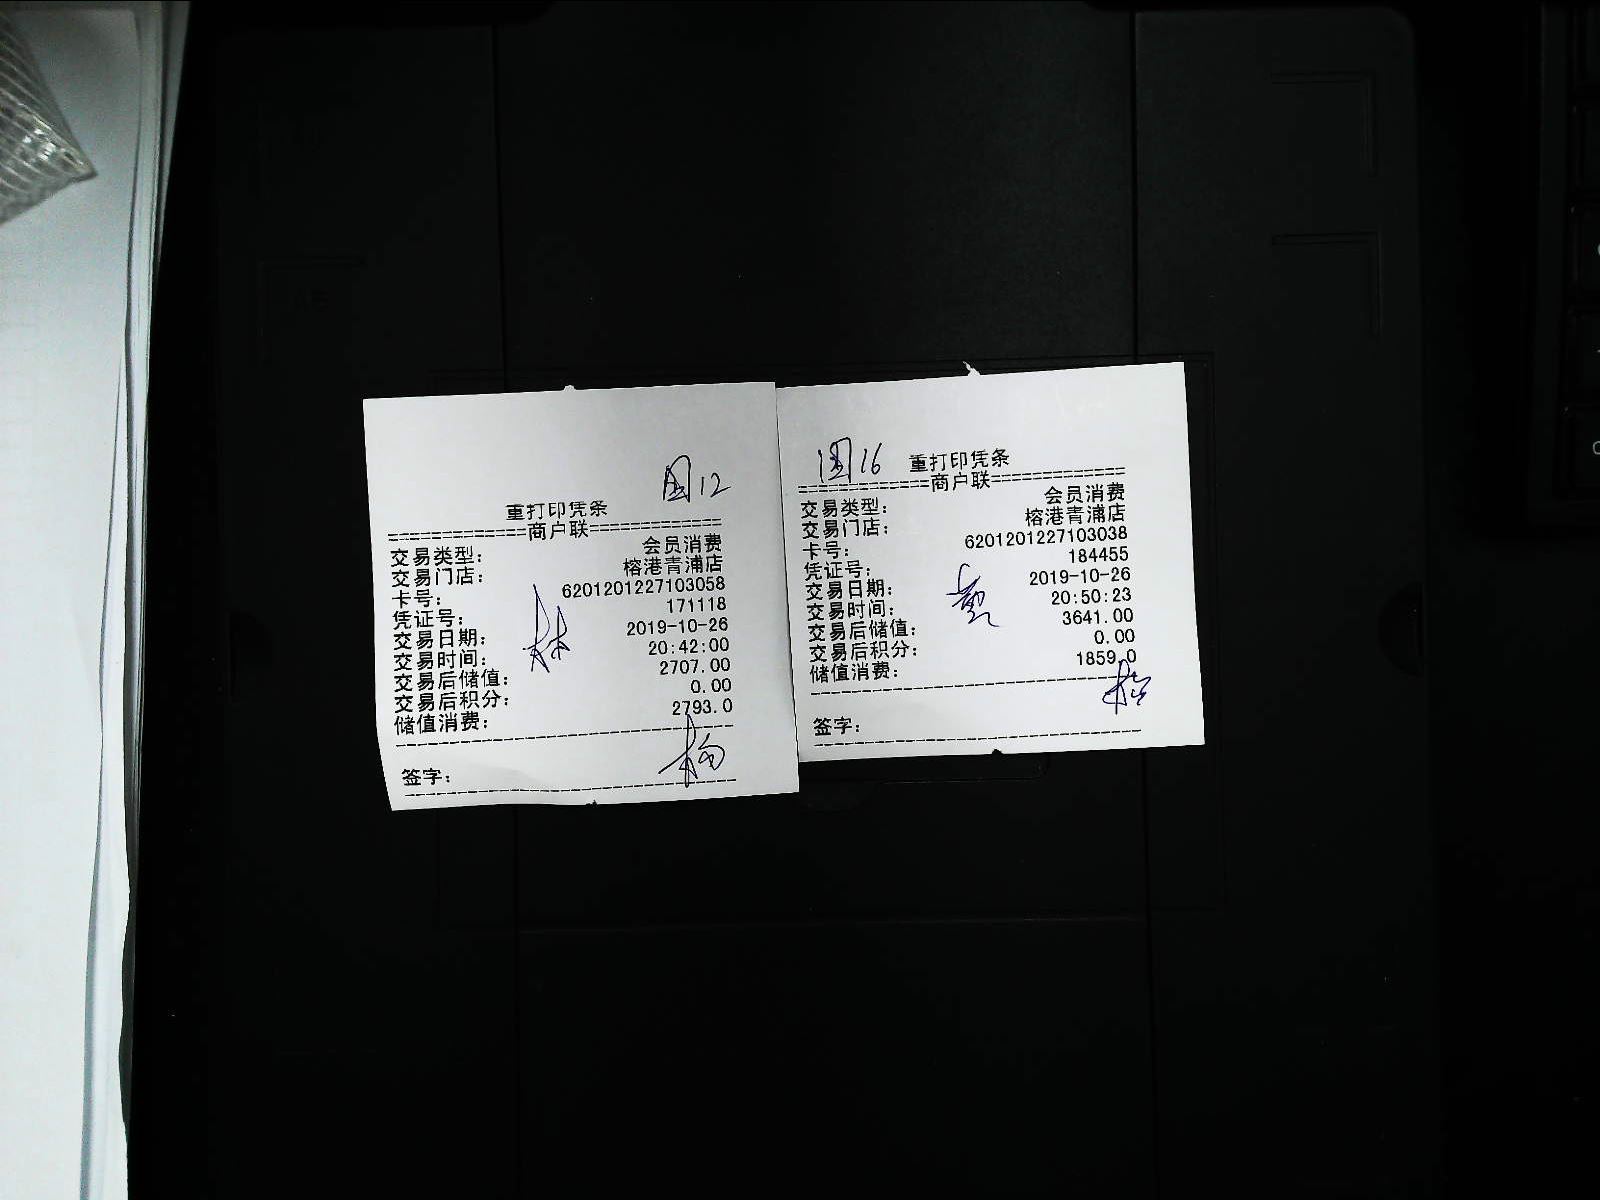 团12
重打印凭条
=============商户联=============
交易类型: 会员消费
交易门店: 榕港青浦店
卡号: 6201201227103058
凭证号: 171118
交易日期: 2019-10-26
交易时间: 20:42:00
交易后储值: 2707.00
交易后积分: 0.00
储值消费: 2793.0
林
签字: 杨
团16 重打印凭条
=============商户联=============
交易类型: 会员消费
交易门店: 榕港青浦店
卡号: 6201201227103038
凭证号: 184455
交易日期: 2019-10-26
交易时间: 20:50:23
交易后储值: 3641.00
交易后积分: 0.00
储值消费: 1859.0
签字: